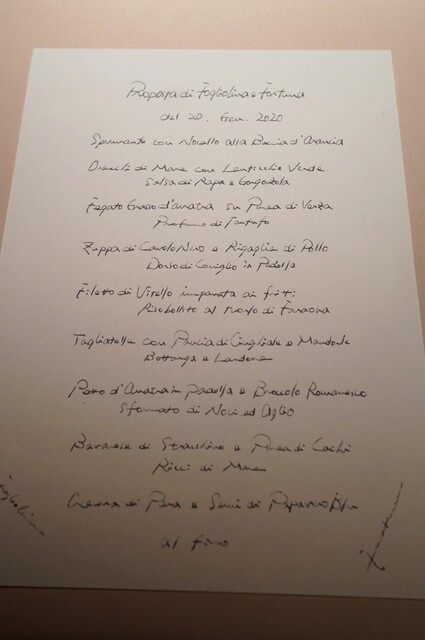 Proposta di Fogliolina e Fortuna
del 20. Gen. 2020
Spumante con Novello alla Buccia d'Arancia
Orecchi di Mare con Lenticchie Verde
Salsa di Rapa e Gorgonzola
Fegato Grasso d'anatra su Purea di Verza
Profumo di Tartufo
Zuppa di Cavolo Nero e Rigaglie di Pollo
Dorso di Coniglio in Padella
Filetto di Vitello impanata ai fritti
Ribollito al Tuorlo di Faraona
Tagliatelle con Pancia di Cinghiale e Mandorle
Bottarga e Lardone
Petto d'Anatra in padella e Broccolo Romanesco
Sformato di Noci ed Aglio
Bavarese di Stracchino e Purea di Cachi
Ricci di Mare
Crema di Pera e Semi di Papavero Blu
al fino
Fogliolina
Fortuna